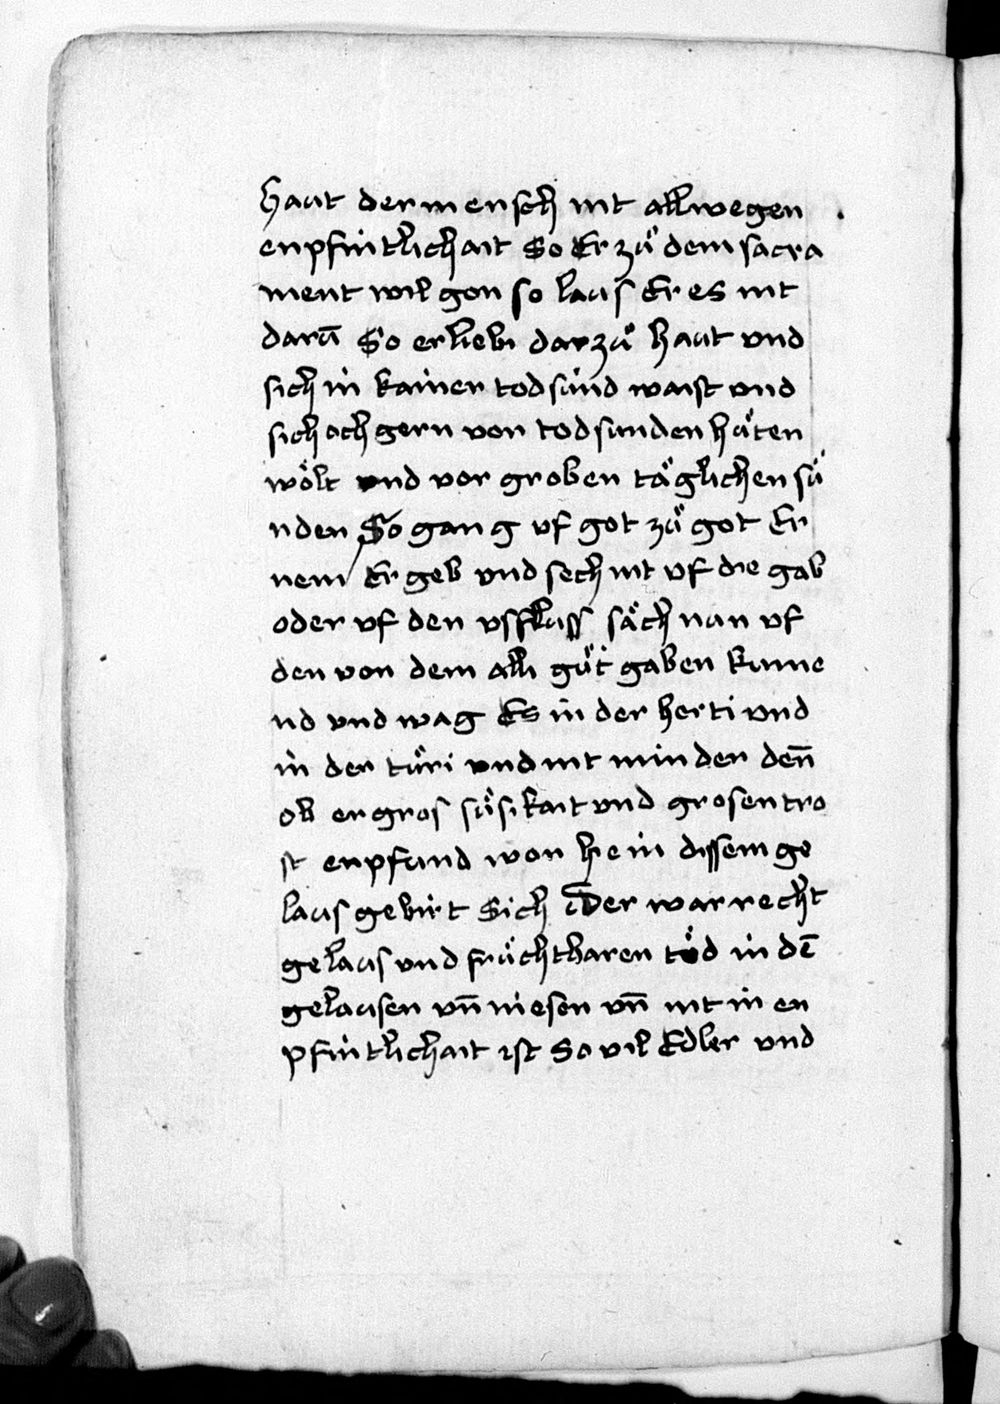 Haut der mensch nit allwegen
enpfintlichait So Er zuͦ dem sacra
ment wil gon so laus Er es nit
darū So er liebi dar zuͦ haut vnd
sich in kainen tod sünd waist vnd
sich och gern von tod sunden huͤten
woͤlt vnd vor groben taͤglichen sü
nden So gang vf got zuͦ got Er
nem Er geb vnd sech nit vf die gab
oder vf den vsfluss saͤch nun vf
den von dem alli guͤt gaben kume
nd vnd wag Es in der herti vnd
in der türi vnd nit minder den̄
ob er gros suͤsikait vnd grosen tro
st enpfund won hie in dissem ge
laus gebirt Sich Der war recht
gelaus vnd fruͤchtbaren toͤd in dē
gelausen vn̄ niesen vn̄ nit in en
pfintlichait ist So vil Edler vnd